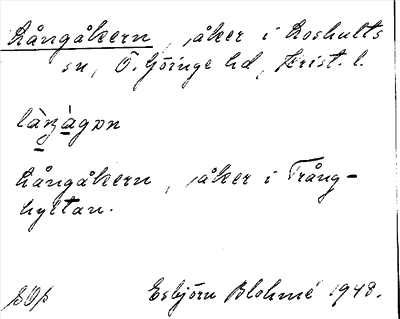 Långåkern, åker i Loshults
sn, Ö. Göinge hd, Krist. l.
làŋágɒn
Långåkern, åker i Trång-
hyltan.
Esbjörn Blohmé 1948.